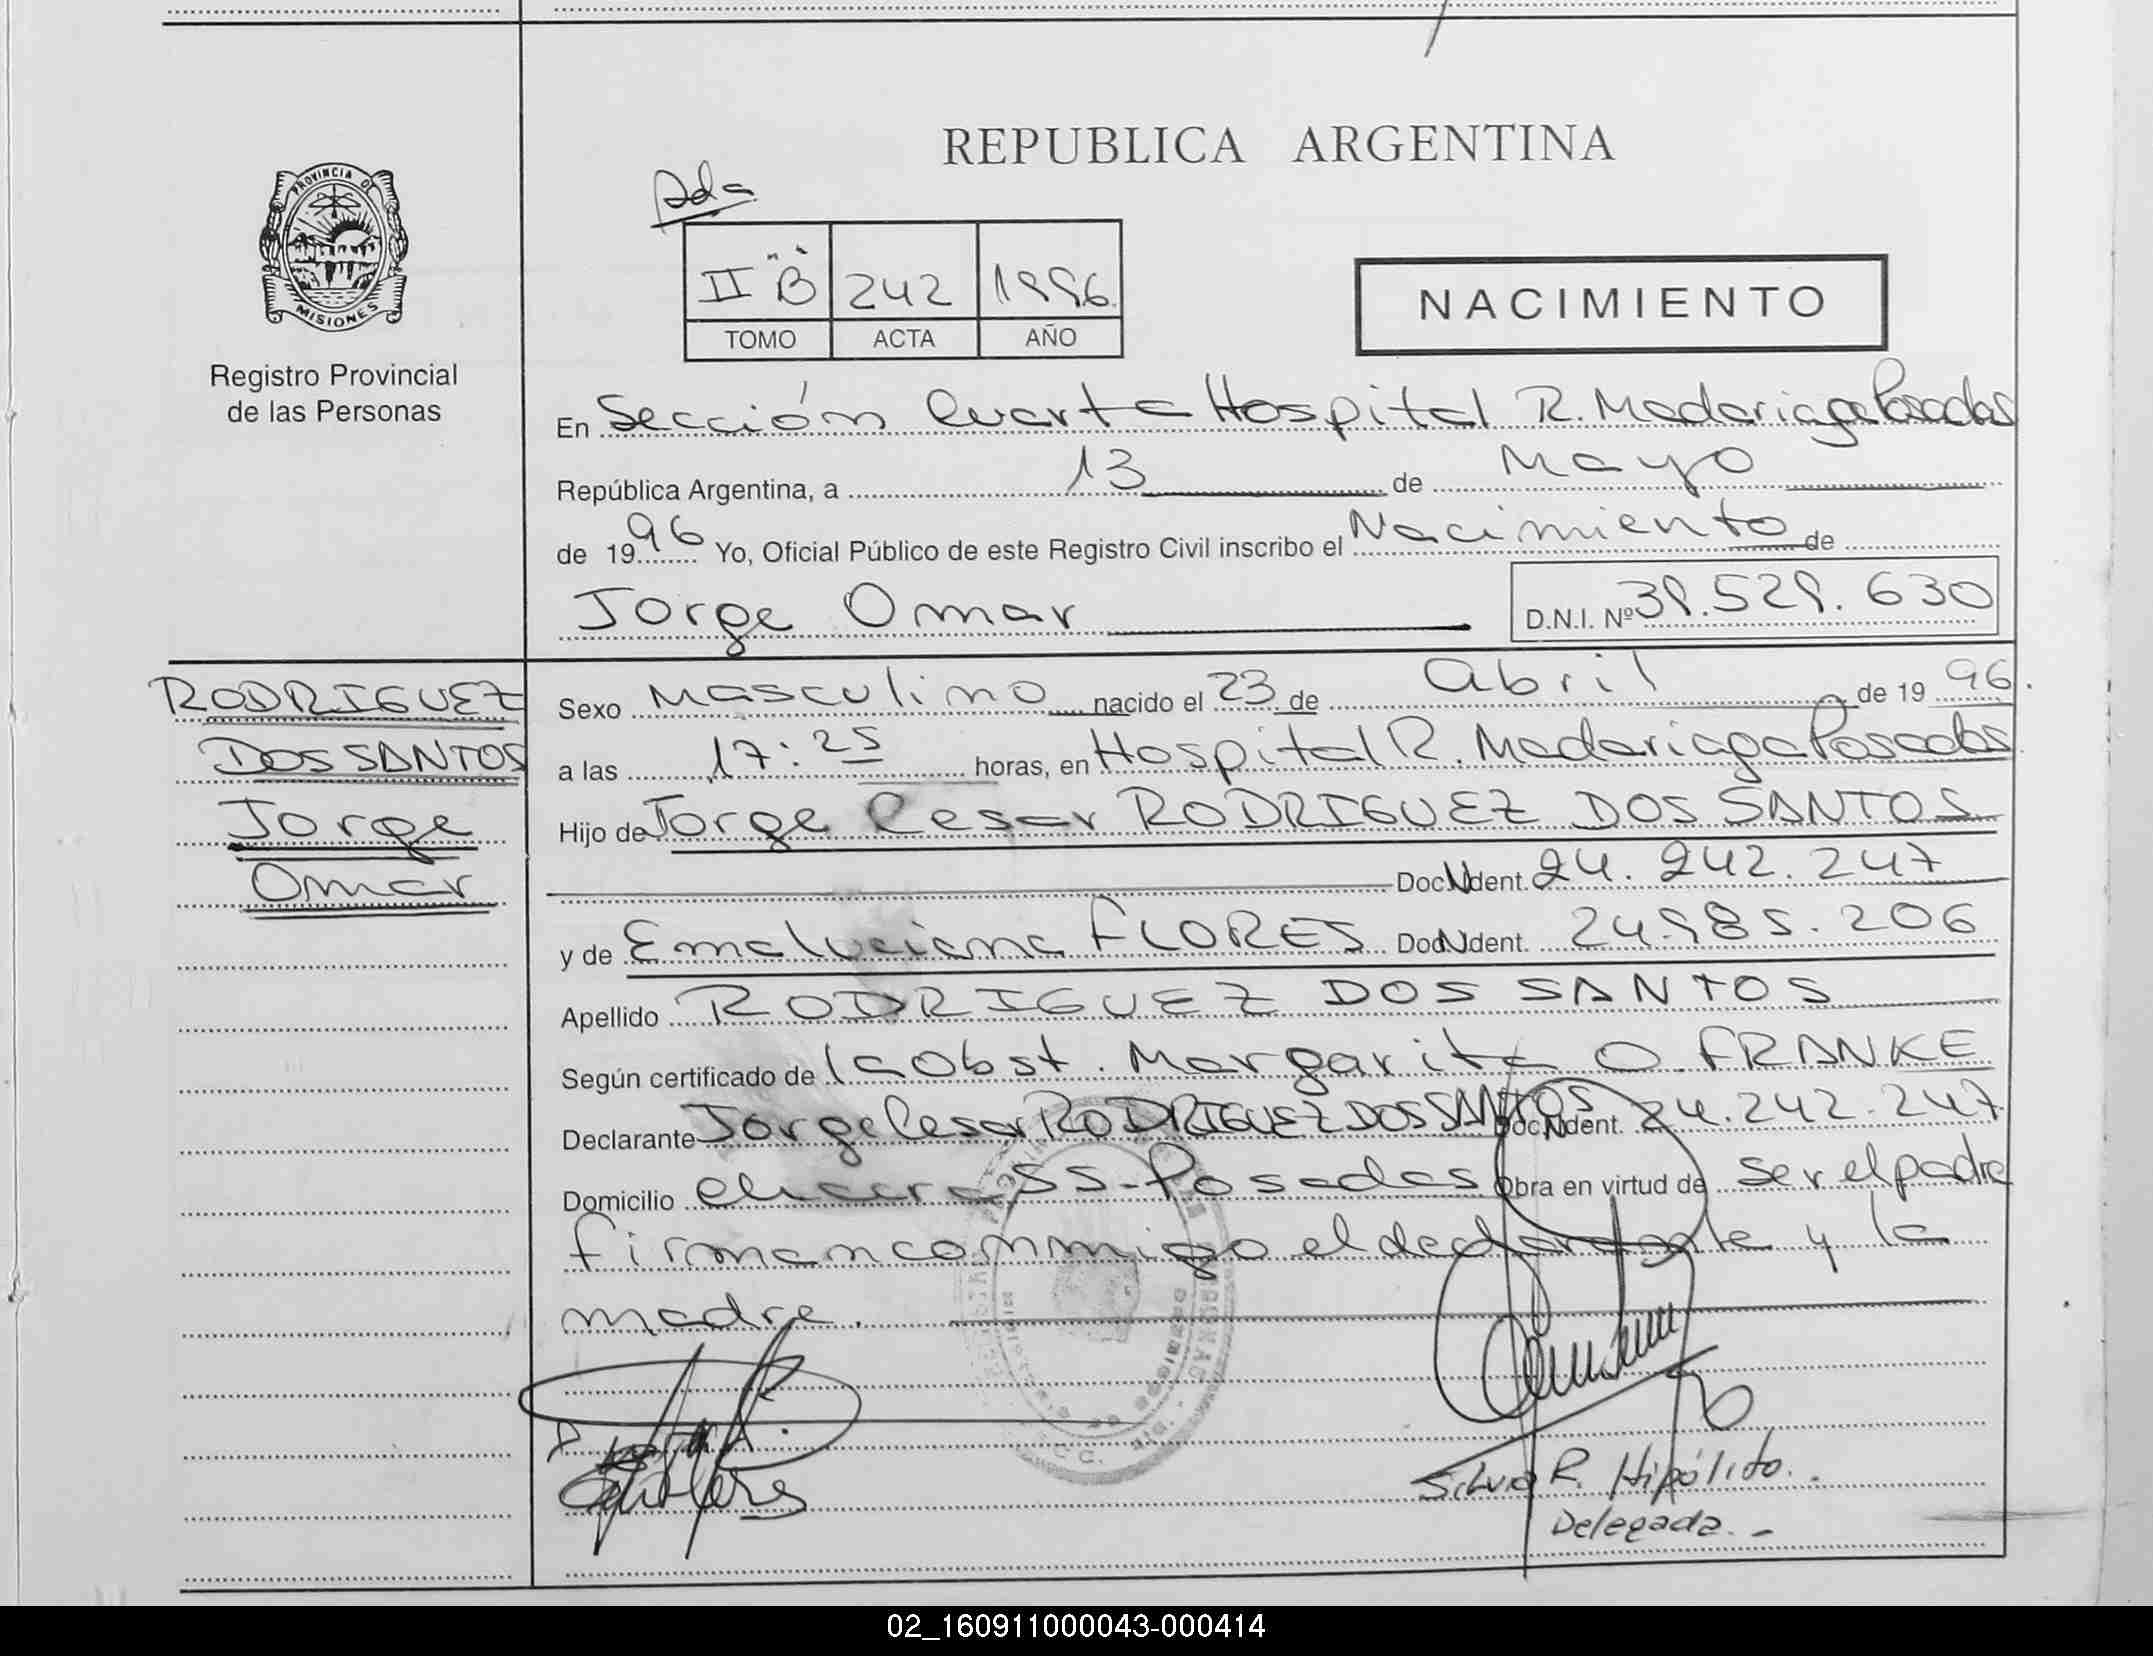 REPUBLICA ARGENTINA
PROVINCIA DE
MISIONES
Registro Provincial
de las Personas
Pdas
II "B" 242 1996
TOMO ACTA AÑO
NACIMIENTO
En Sección Cuarta Hospital R. Madariaga Posadas
República Argentina, a 13 de Mayo
de 1996 Yo, Oficial Público de este Registro Civil inscribo el Nacimiento de
Jorge Omar D.N.I. Nº 39.529.630
RODRIGUEZ
DOS SANTOS
Jorge
Omar
Sexo Masculino nacido el 23 de Abril de 1996.
a las 17:25 horas, en Hospital R. Madariaga Posadas
Hijo de Jorge Cesar RODRIGUEZ DOS SANTOS
Doc. Ident. 24.242.247
y de Ema Luciana FLORES Doc. Ident. 24.985.206
Apellido RODRIGUEZ DOS SANTOS
Según certificado de la Obst. Margarita O. FRANKE
Declarante Jorge Cesar RODRIGUEZ DOS SANTOS Doc. Ident. 24.242.247
Domicilio Chacra 55 - Posadas Obra en virtud de ser el padre
firman conmigo el declarante y la
madre.
Silvia R. Hipólito.
Delegada.-
02_160911000043-000414